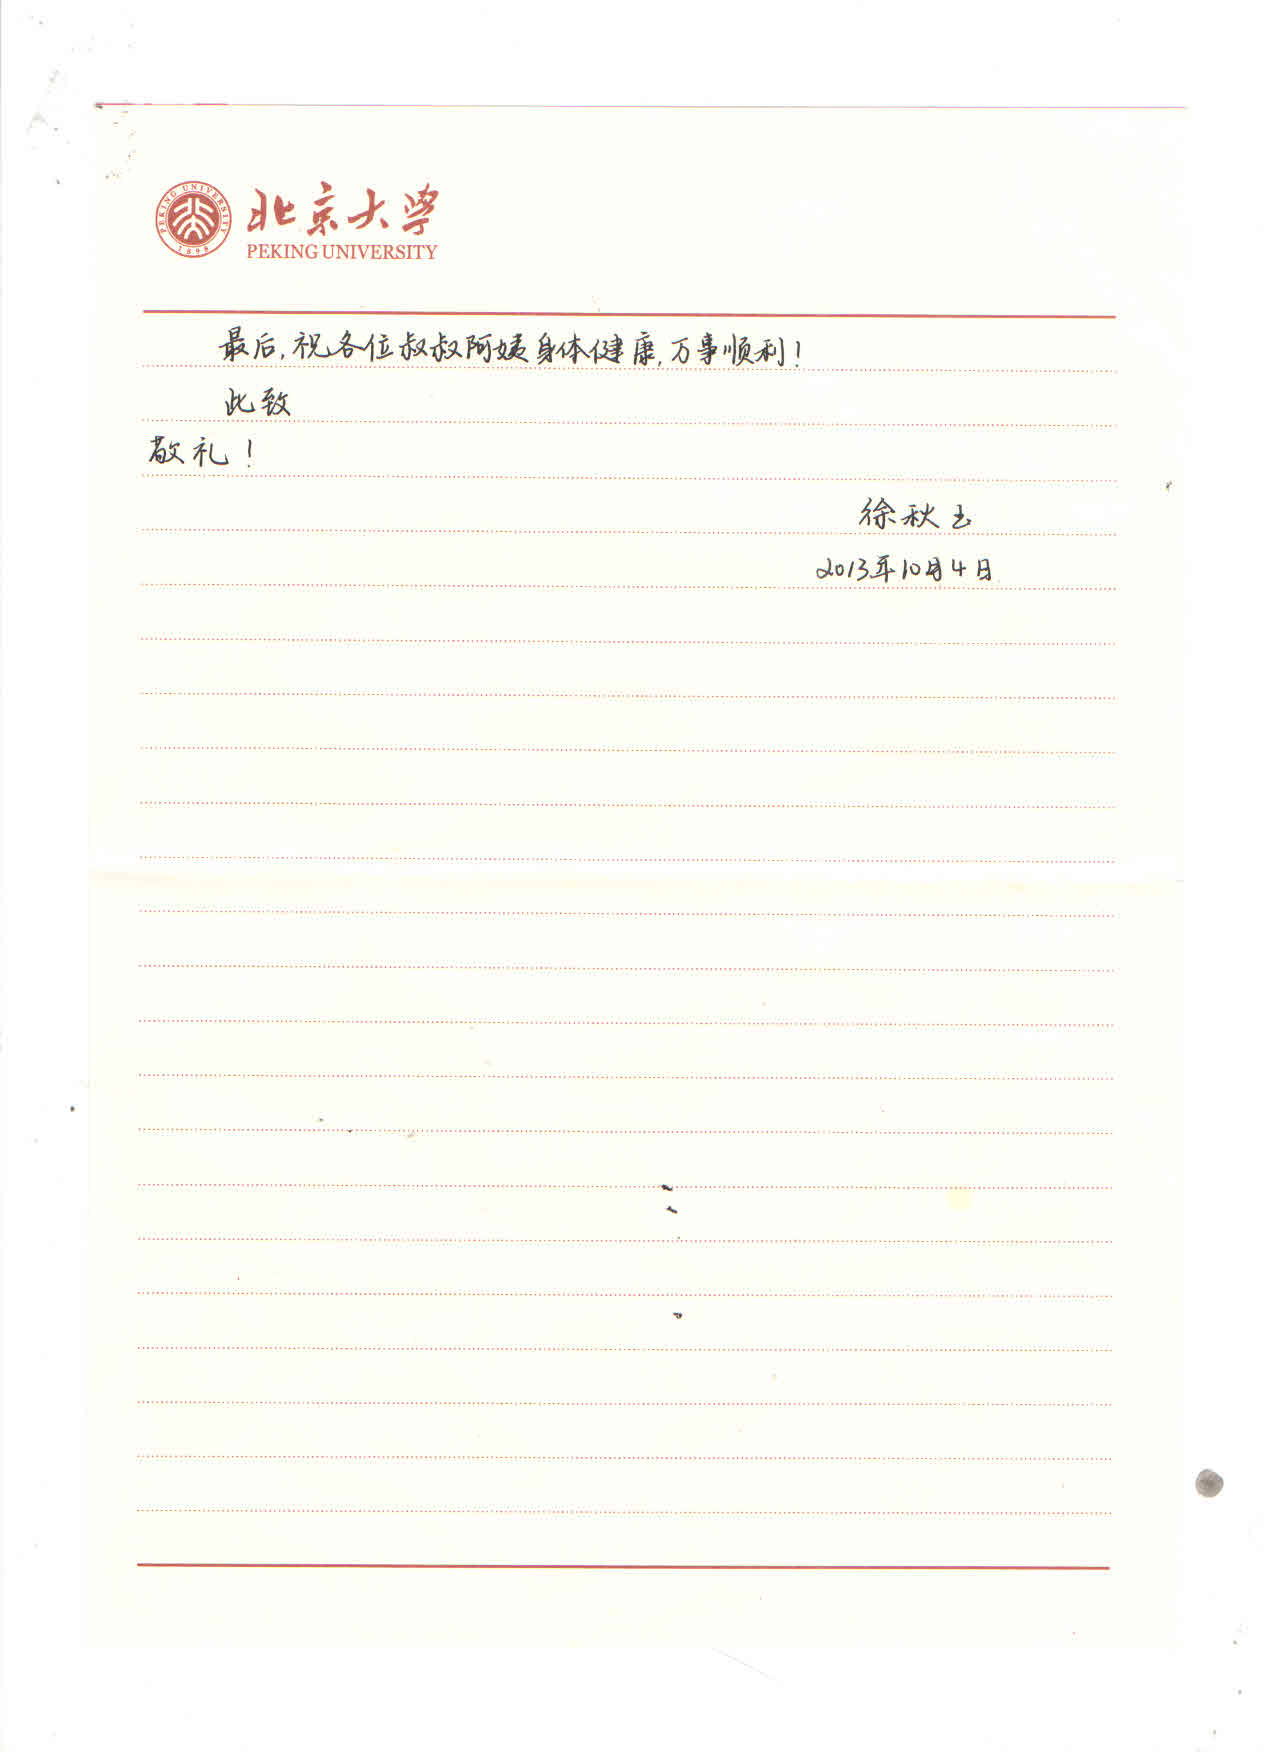 PEKING UNIVERSITY
1898
北京大学
PEKING UNIVERSITY
最后,祝各位叔叔阿姨身体健康,万事顺利!
此致
敬礼!
徐秋玉
2013年10月4日